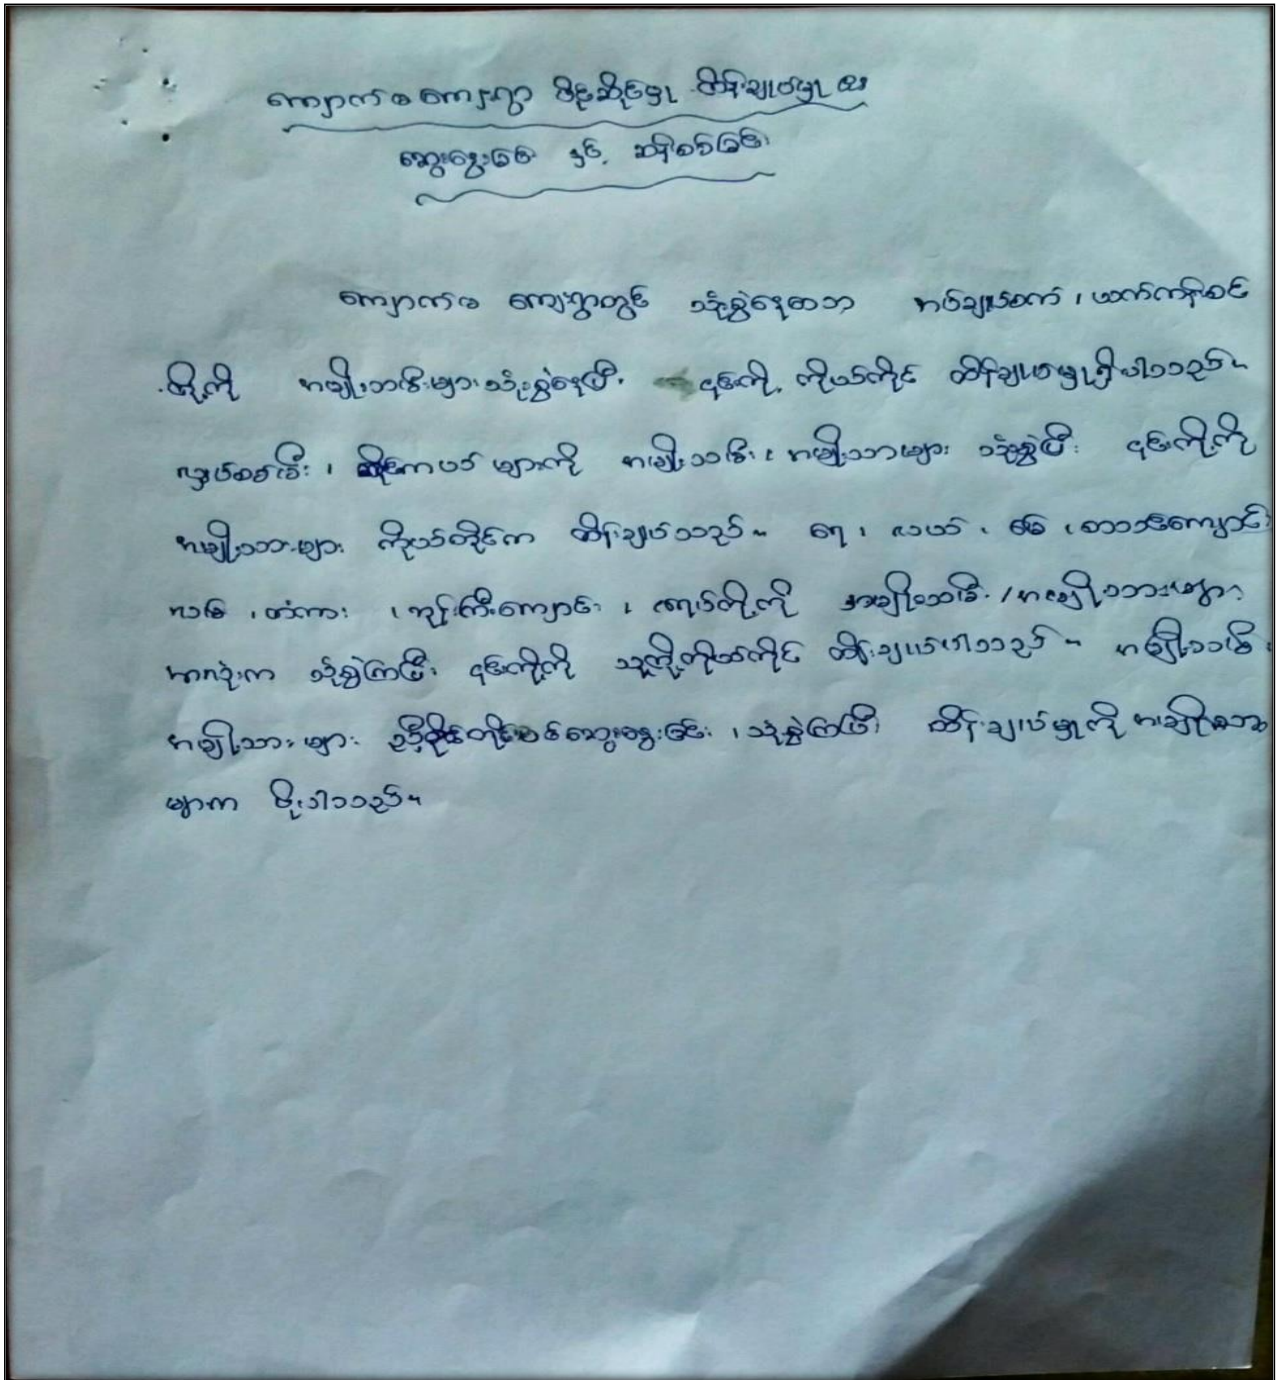 ကျောက်စကျေးရွာ ပိုင်ဆိုင်မှု ထိန်းချုပ်မှု အား
ဆွေးနွေးခြင်း နှင့် ဆန်းစစ်ခြင်း
ကျောက်စ ကျေးရွာတွင် သုံးစွဲနေသော အပ်ချုပ်စက်၊ ယက်ကန်းစင်
တို့ကို အမျိုးသမီးများ သုံးစွဲနေပြီး ၎င်းကို ကိုယ်တိုင် ထိန်းချုပ်မှုရှိပါသည်။
လျှပ်စစ်မီး၊ ဆိုင်ကယ် များကို အမျိုးသမီး၊ အမျိုးသားများ သုံးစွဲပြီး ၎င်းတို့ကို
အမျိုးသားများ ကိုယ်တိုင်က ထိန်းချုပ်သည်။ ရေ၊ လယ်၊ မြေ၊ စာသင်ကျောင်း
လမ်း၊ တံတား၊ ဘုန်းကြီးကျောင်း၊ တို့ကို အမျိုးသမီး/အမျိုးသားများ
အားလုံးက သုံးစွဲကြပြီး ၎င်းတို့ကို သူတို့ကိုယ်တိုင် ထိန်းချုပ်ပါသည်။ အမျိုးသမီး
အမျိုးသားများ ညှိနှိုင်းတိုင်ပင်ဆွေးနွေးခြင်း၊ သုံးစွဲကြပြီး ထိန်းချုပ်မှုကို အမျိုးသား
များက မိုးပါသည်။